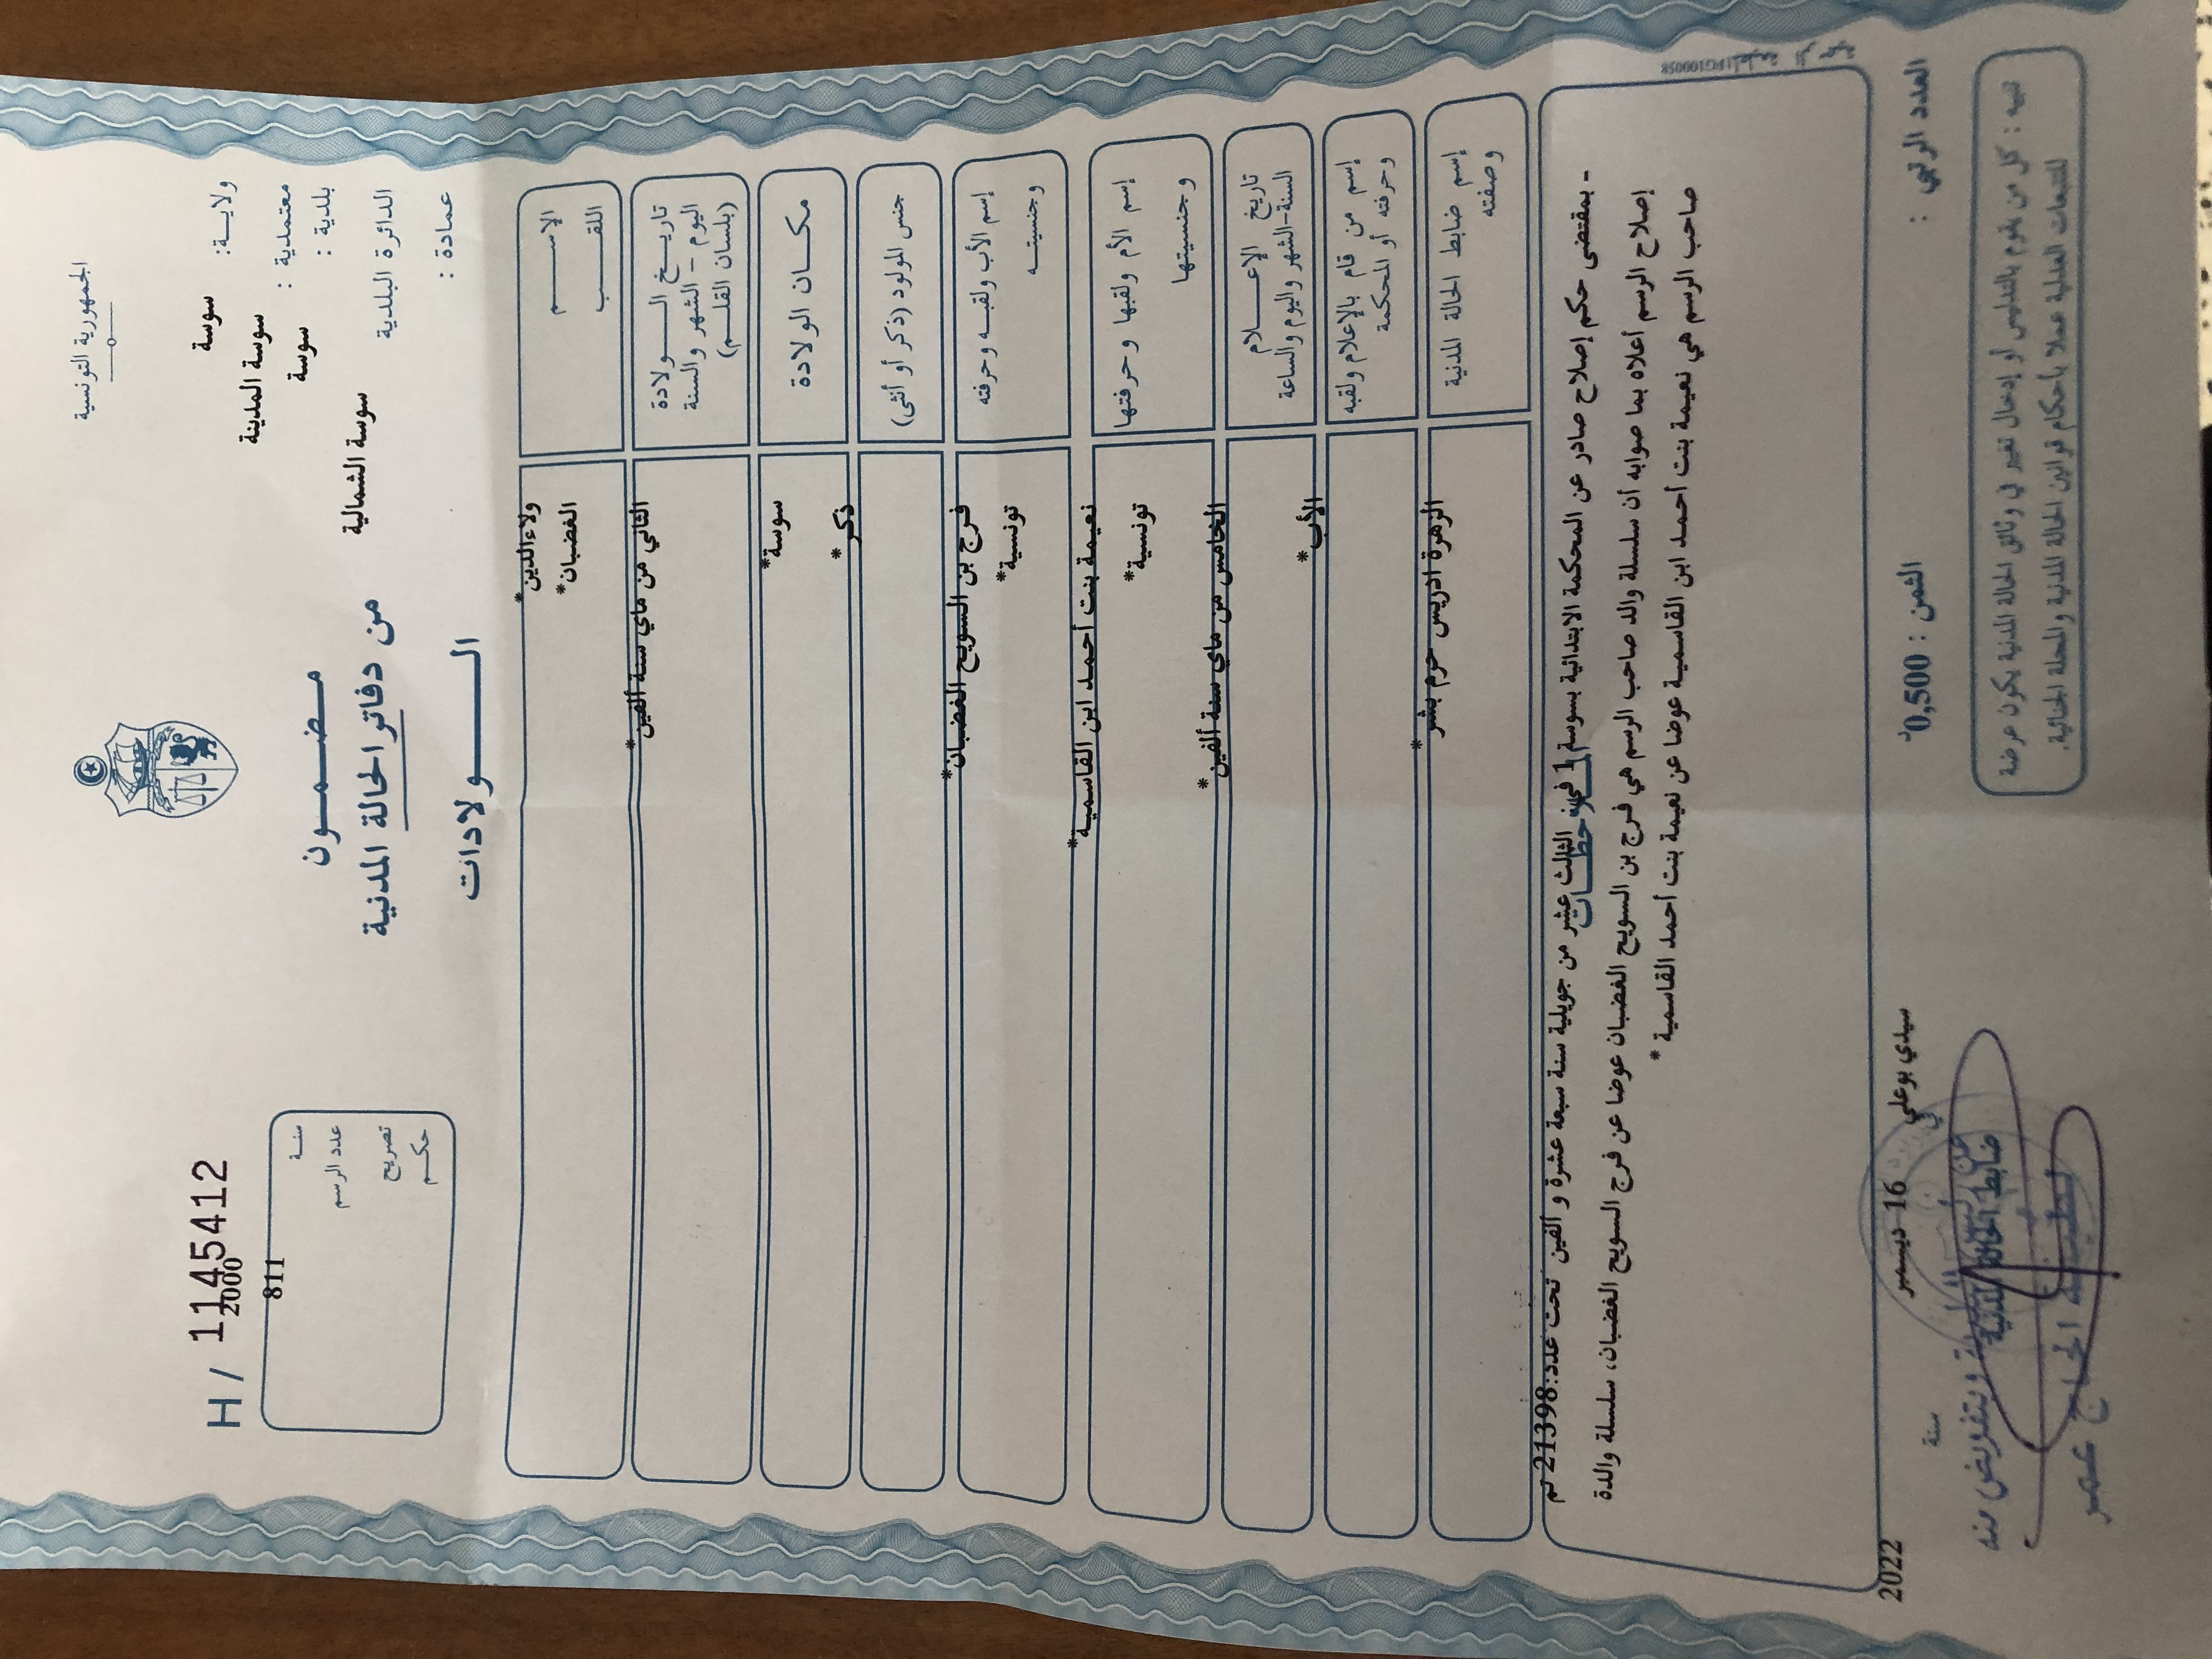 الجمهورية التونسية
H / 1145412
ولاية: سوسة
2000
معتمدية : سوسة المدينة
811
بلدية : سوسة
سنة
مضمون
عدد الرسم
الدائرة البلدية سوسة الشمالية
من دفاتر الحالة المدنية
تصريح
حكم
عمادة :
الولادات
الإسم ولاءالدين*
اللقب الغضبان*
تاريخ الولادة الثاني من ماي سنة ألفين*
اليوم - الشهر والسنة
(بلسان القلم)
مكان الولادة سوسة*
جنس المولود (ذكر أو أنثى) ذكر*
إسم الأب ولقبه وحرفته فرج بن السويح الغضبان*
وجنسيته تونسية*
إسم الأم ولقبها وحرفتها نعيمة بنت أحمد ابن القاسمية*
وجنسيتها تونسية*
تاريخ الإعلام الخامس من ماي سنة ألفين*
السنة-الشهر واليوم والساعة
إسم من قام بالإعلام ولقبه الأب*
وحرفته أو المحكمة
إسم ضابط الحالة المدنية الزهرة ادريس حرم بشر*
وصفته
الملاحظات
- بمقتضى حكم إصلاح صادر عن المحكمة الابتدائية بسوسة 1 في الثالث عشر من جويلية سنة سبعة عشرة و ألفين تحت عدد:21398 تم
إصلاح الرسم أعلاه بما صوابه أن سلسلة والد صاحب الرسم هي فرج بن السويح الغضبان عوضا عن فرج السويح الغضبان، سلسلة والدة
صاحب الرسم هي نعيمة بنت أحمد ابن القاسمية عوضا عن نعيمة بنت أحمد القاسمية *
PG100058
العدد الرتبي :
الثمن : 0,500د
سيدي بوعلي في 16 ديسمبر سنة 2022
تنبيه : كل من يقوم بالتدليس أو إدخال تغيير في وثائق الحالة المدنية يكون عرضة
للتتبعات العدلية عملا بأحكام قوانين الحالة المدنية والمجلة الجنائية.
وبتفويض منه
ضابط الحالة المدنية
الحاج عمر